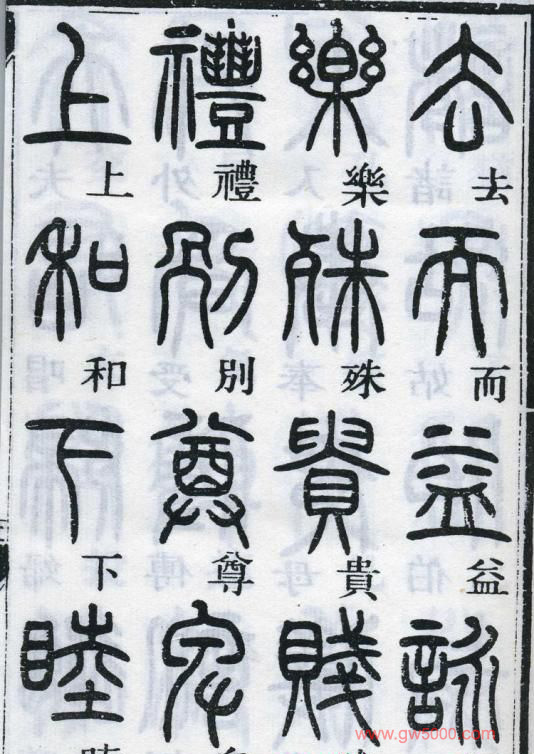 去而益詠
樂殊貴賤
禮別尊卑
上和下睦
www.gw5000.com